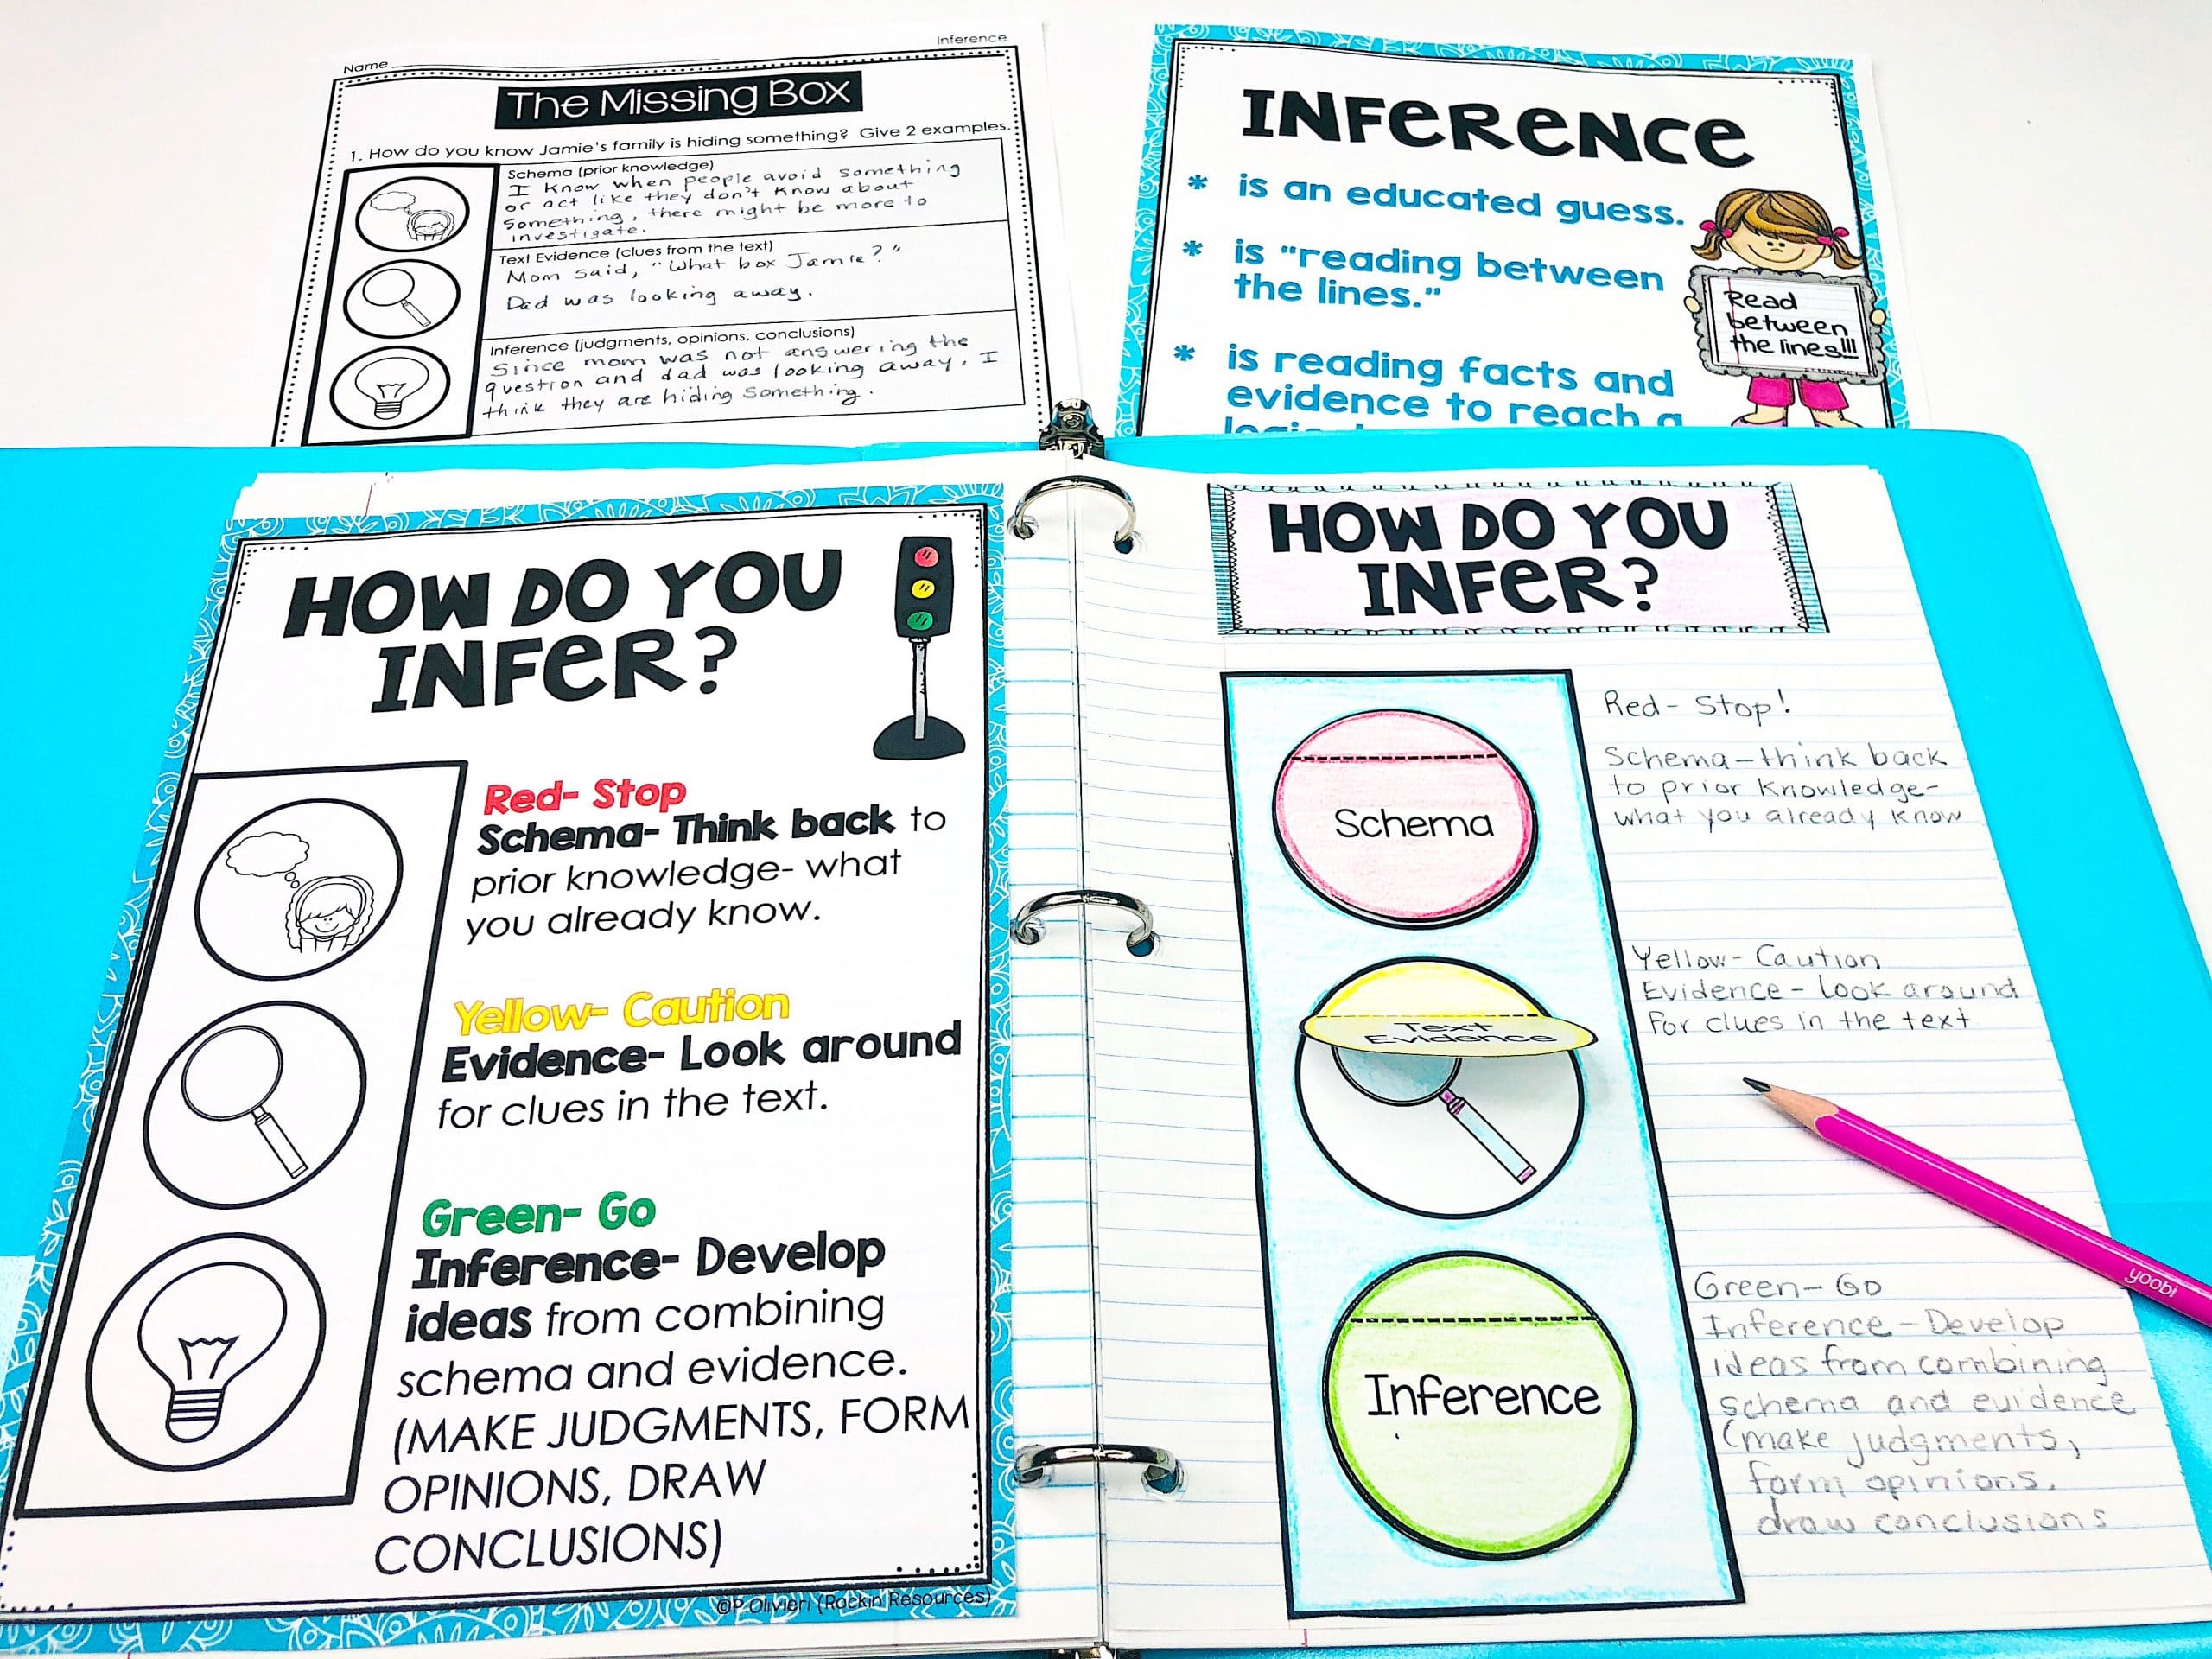 Inference
Name
The Missing Box
1. How do you know Jamie's family is hiding something? Give 2 examples.
Schema (prior knowledge)
I know when people avoid something
or act like they don't know about
something, there might be more to
investigate.
Text Evidence (clues from the text)
Mom said, "What box Jamie?"
Dad was looking away.
Inference (judgments, opinions, conclusions)
Since mom was not answering the
question and dad was looking away, I
think they are hiding something.
INFERENCE
* is an educated guess.
* is "reading between
the lines."
* is reading facts and
evidence to reach a
Read
between
the lines!!!
HOW DO YOU
INFER?
Red- Stop
Schema- Think back to
prior knowledge- what
you already know.
Yellow- Caution
Evidence- Look around
for clues in the text.
Green- Go
Inference- Develop
ideas from combining
schema and evidence.
(MAKE JUDGMENTS, FORM
OPINIONS, DRAW
CONCLUSIONS)
©P Olivieri (Rockin Resources)
HOW DO YOU
INFER?
Schema
Text
Evidence
Inference
Red- Stop!
Schema-think back
to prior knowledge-
what you already know
Yellow- Caution
Evidence- look around
for clues in the text
Green- Go
Inference-Develop
ideas from combining
schema and evidence
(make judgments,
form opinions,
draw conclusions
yoobi